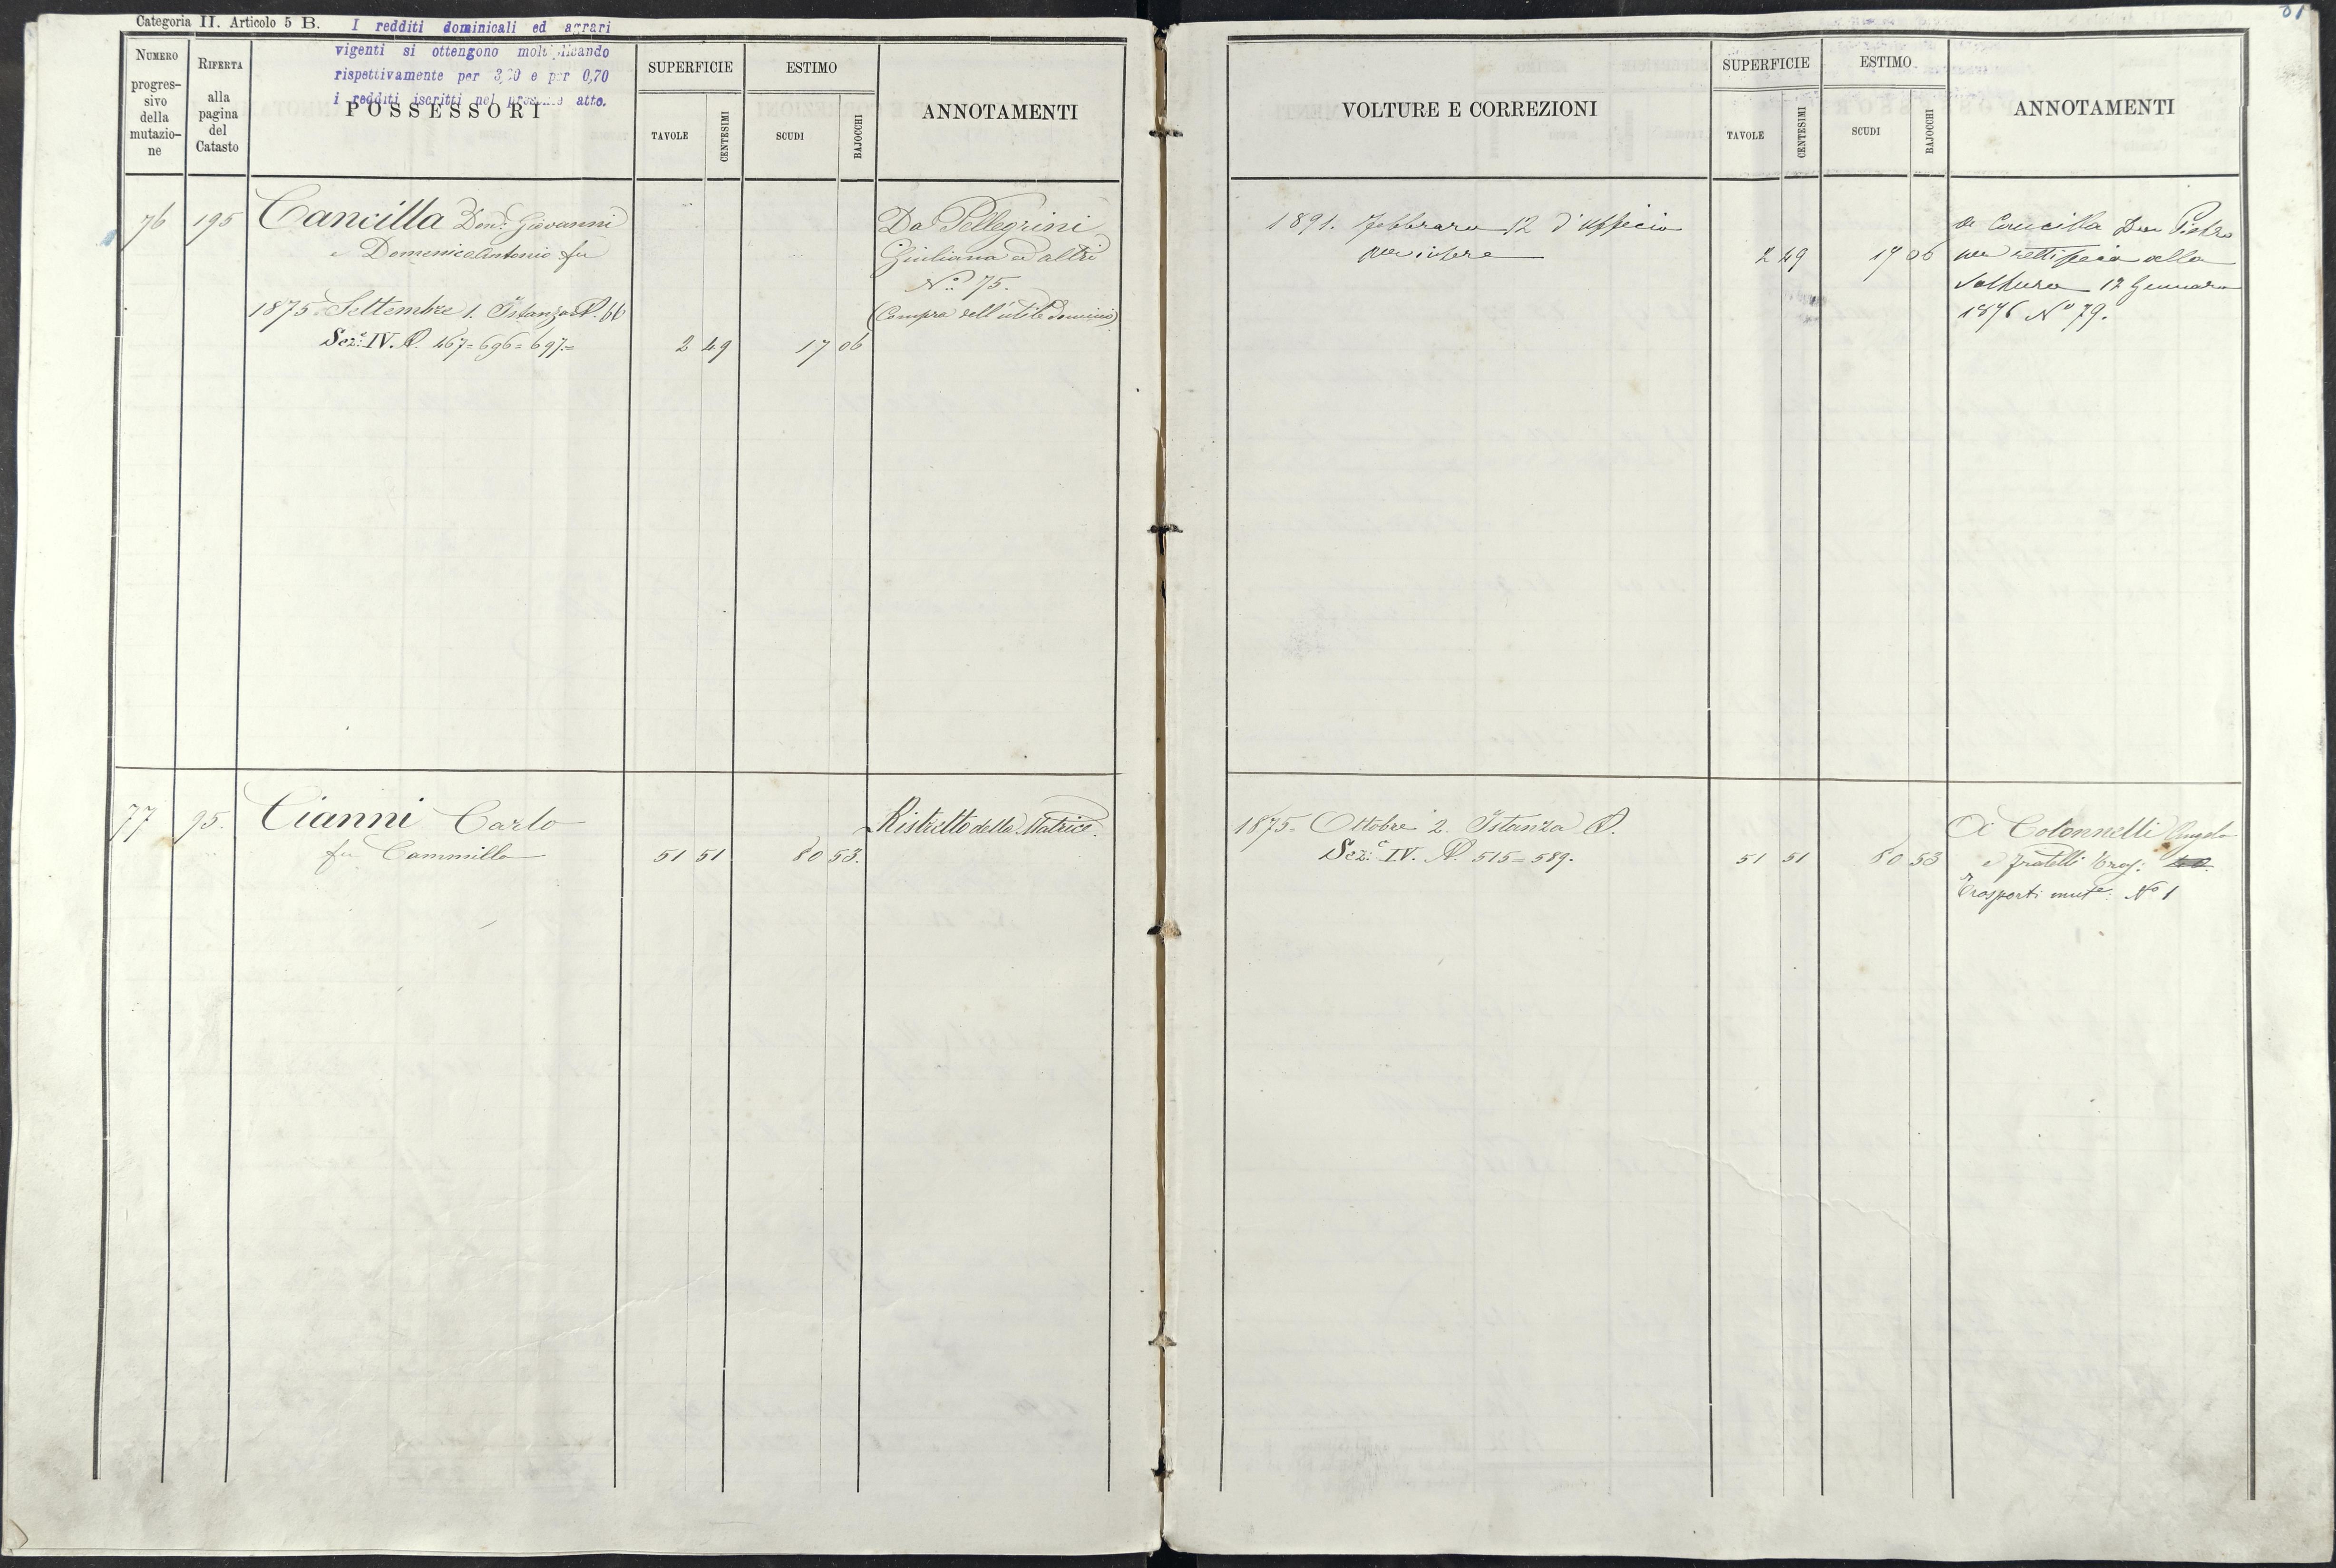 Categoria II. Articolo 5 B.
I redditi dominicali ed agrari
vigenti si ottengono moltiplicando
rispettivamente per 3,20 e per 0,70
i redditi iscritti nel presente atto.
NUMERO
progres-
sivo
della
mutazio-
ne
RIFERTA
alla
pagina
del
Catasto
POSSESSORI
SUPERFICIE
TAVOLE
CENTESIMI
ESTIMO
SCUDI
BAJOCCHI
ANNOTAMENTI
76 195 Cancilla Don: Giovanni
e Domenicantonio fu
1875 Settembre 1. Istanza N. 66
Sez:e IV. N. 467= 696= 697.= 2 49 17 06
Da Pellegrini
Giuliana ed altri
N.o 75.
(Compra dell'utile dominio)
77 95. Cianni Carlo
fu Cammillo 51 51 80 53.
Ristretto della Matrice.
31
VOLTURE E CORREZIONI
SUPERFICIE
TAVOLE
CENTESIMI
ESTIMO
SCUDI
BAJOCCHI
ANNOTAMENTI
1891. Febbraro 12 d'Ufficio
per intere 2 49 17 06
A Cancilla Don Pietro
per rettifica alla
Voltura 12 Gennaro
1876 N.o 79.
1875= Ottobre 2. Istanza N.
Sez:e IV. N. 515= 589. 51 51 80 53
A Colonnelli Angelo
e fratelli
Trasporti mut.e N.o 1